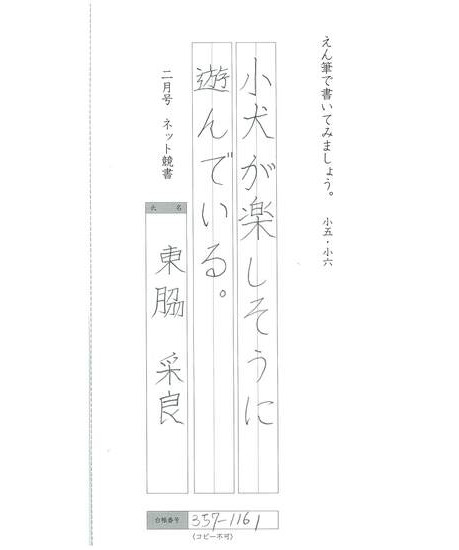 えん筆で書いてみましょう。 小五・小六
小犬が楽しそうに
遊んでいる。
二月号 ネット競書
氏 名
東脇 采良
台帳番号 357-1161
(コピー不可)